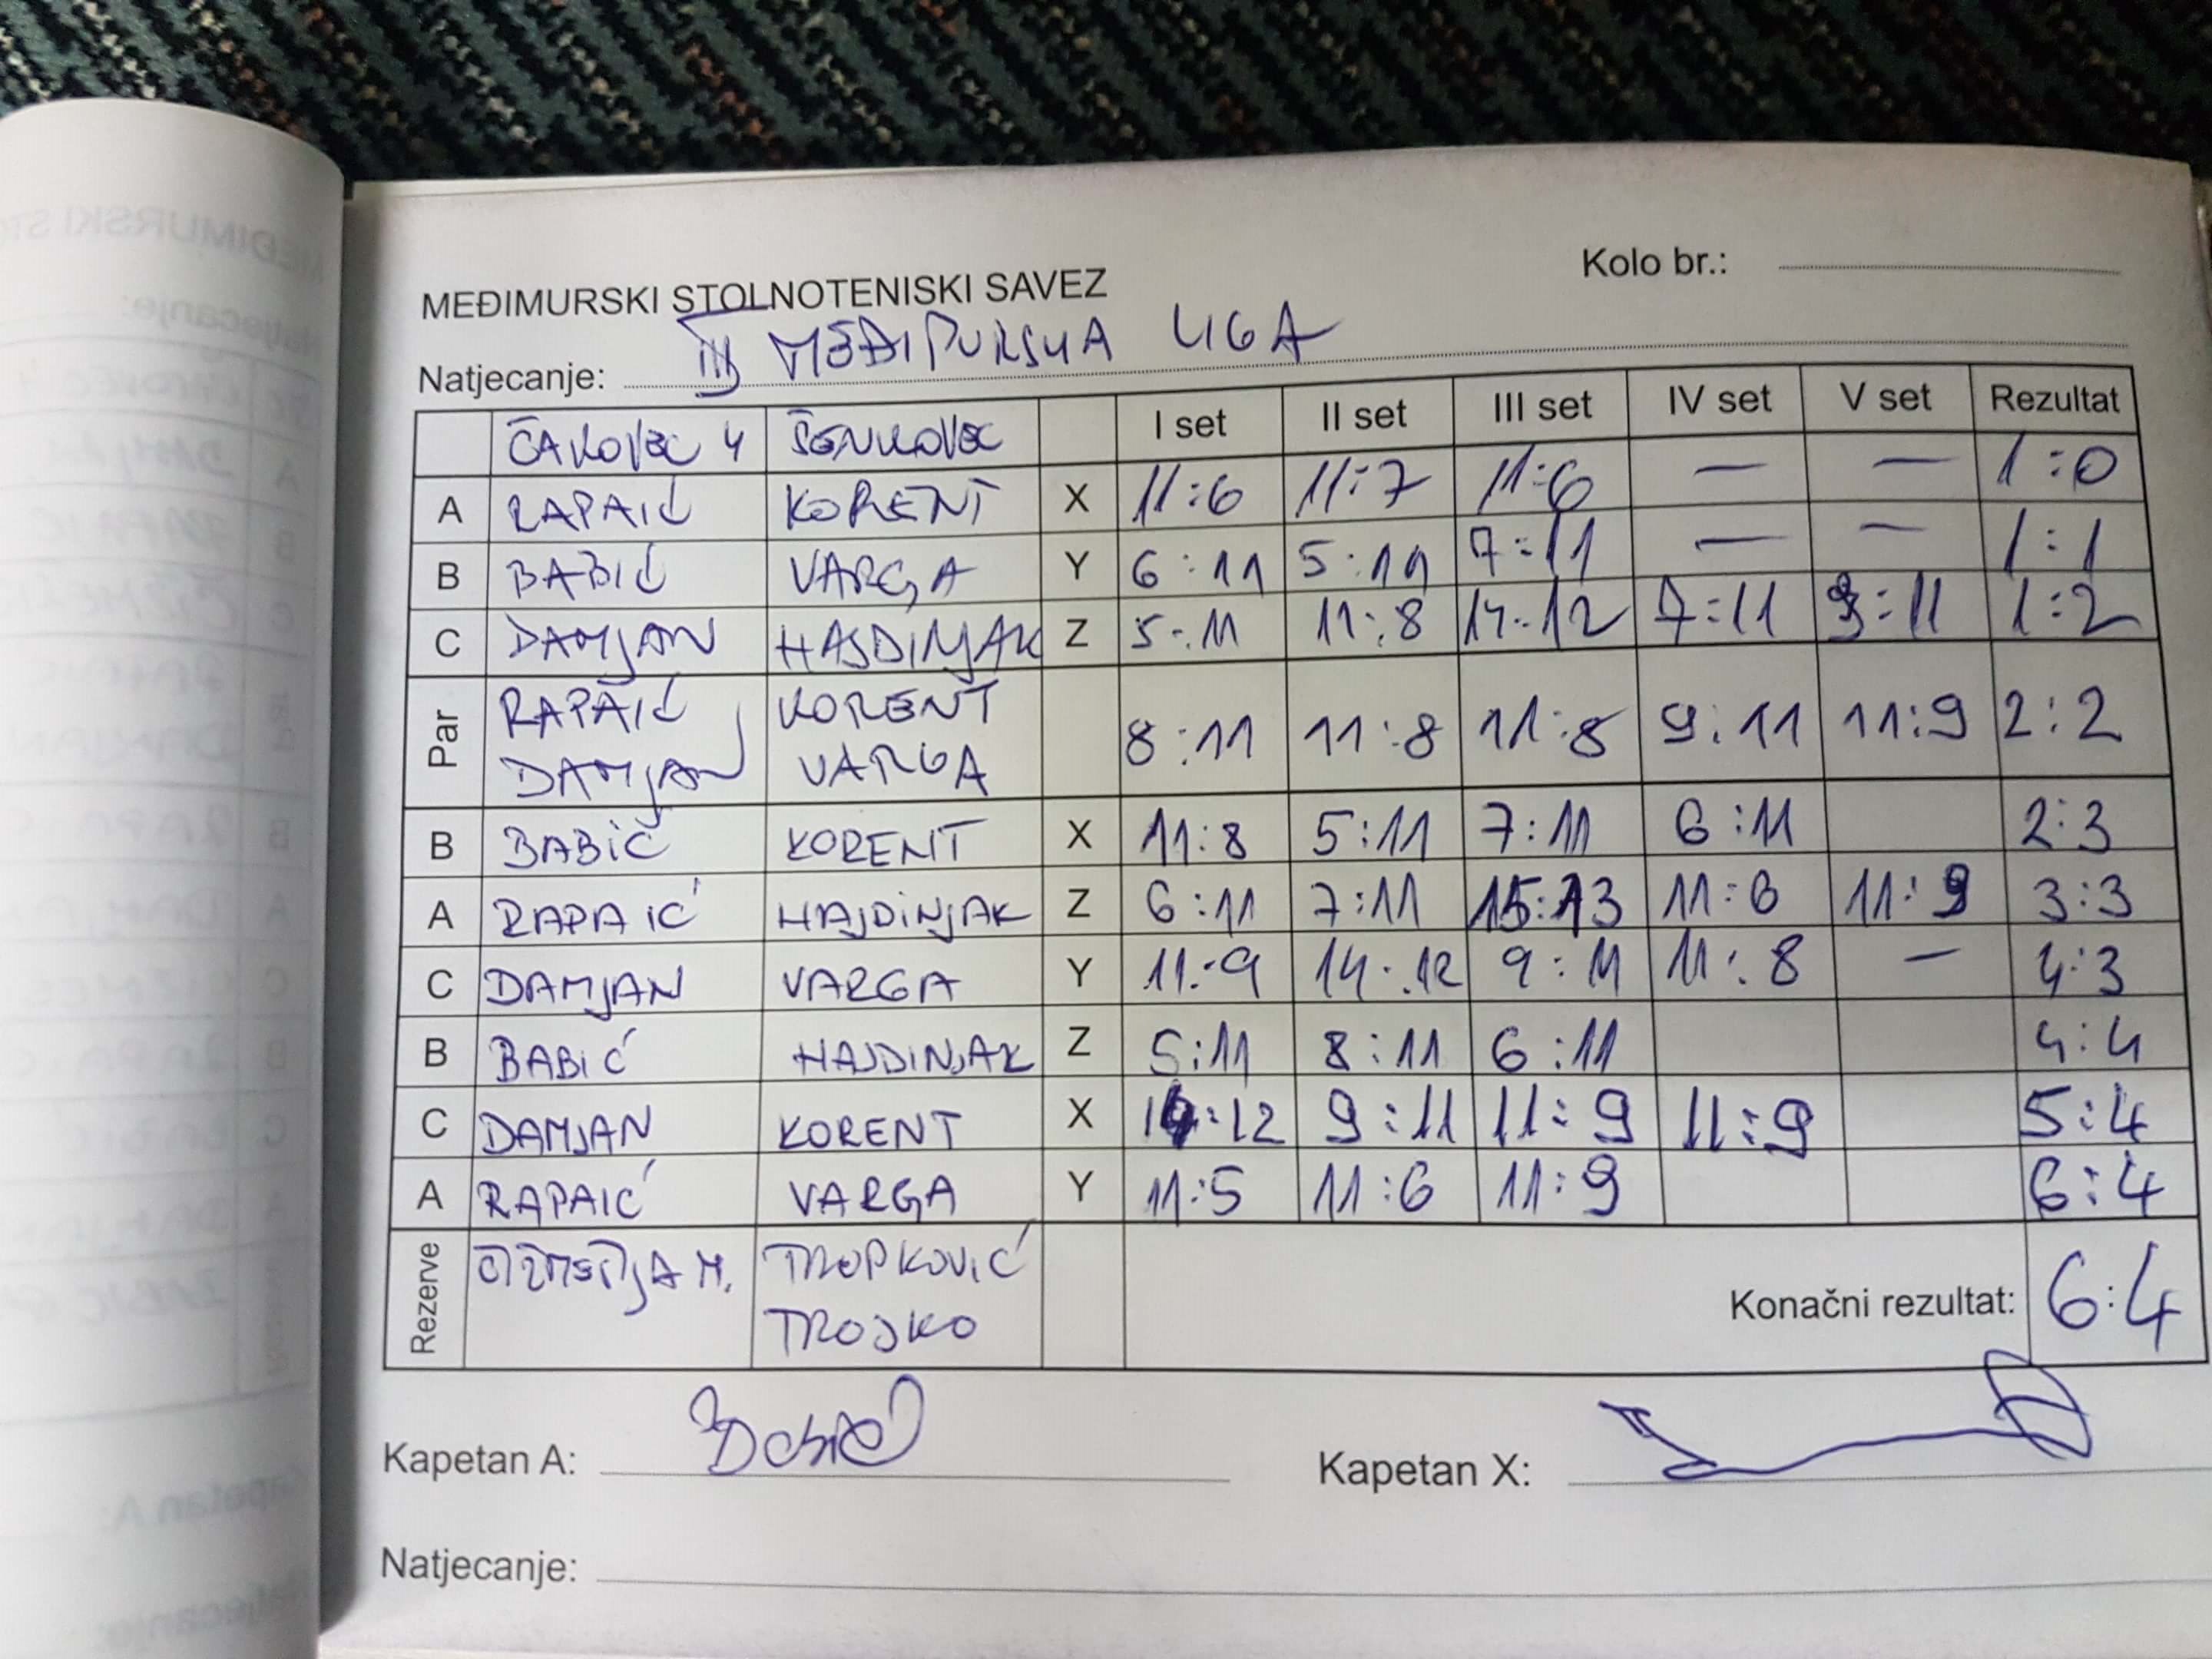 MEĐIMURSKI STOLNOTENISKI SAVEZ
Kolo br.:
Natjecanje: III MEĐIMURSKA LIGA
ČAKOVEC 4 ŠENKOVEC I set II set III set IV set V set Rezultat
A RAPAIĆ KORENT X 11:6 11:7 11:6 — — 1:0
B BABIĆ VARGA Y 6:11 5:11 7:11 — — 1:1
C DAMJAN HAJDINJAK Z 5:11 11:8 14:12 7:11 9:11 1:2
Par RAPAIĆ KORENT
DAMJAN VARGA 8:11 11:8 11:8 9:11 11:9 2:2
B BABIĆ KORENT X 11:8 5:11 7:11 6:11 2:3
A RAPAIĆ HAJDINJAK Z 6:11 7:11 15:13 11:6 11:9 3:3
C DAMJAN VARGA Y 11:9 14:12 9:11 11:8 — 4:3
B BABIĆ HAJDINJAK Z 5:11 8:11 6:11 4:4
C DAMJAN KORENT X 14:12 9:11 11:9 11:9 5:4
A RAPAIĆ VARGA Y 11:5 11:6 11:9 6:4
Rezerve ČIZMEŠIJA M. TROPKOVIĆ
TROJKO
Konačni rezultat: 6:4
Kapetan A: Babić
Kapetan X:
Natjecanje: